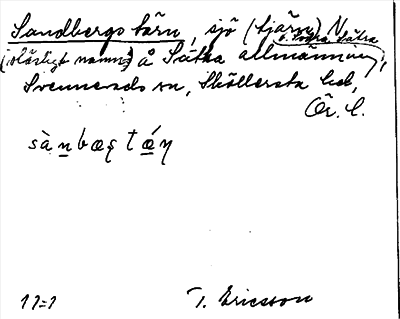 Sandbergs tärn, sjö (tjärn) N
o. Södra Sätra
(olämpligt namn) å Sätra allmänning,
Svennevads sn, Sköllersta hd,
Ör. l.
sànbæs tǽn
T. Ericsson